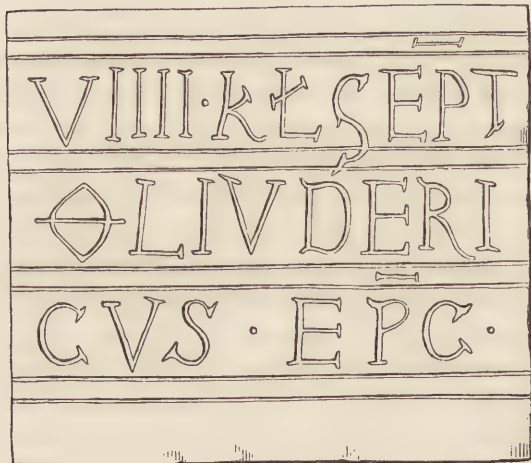 VIIII·KŁ SEPT
ΘLIVDERI
CVS · EPC ·